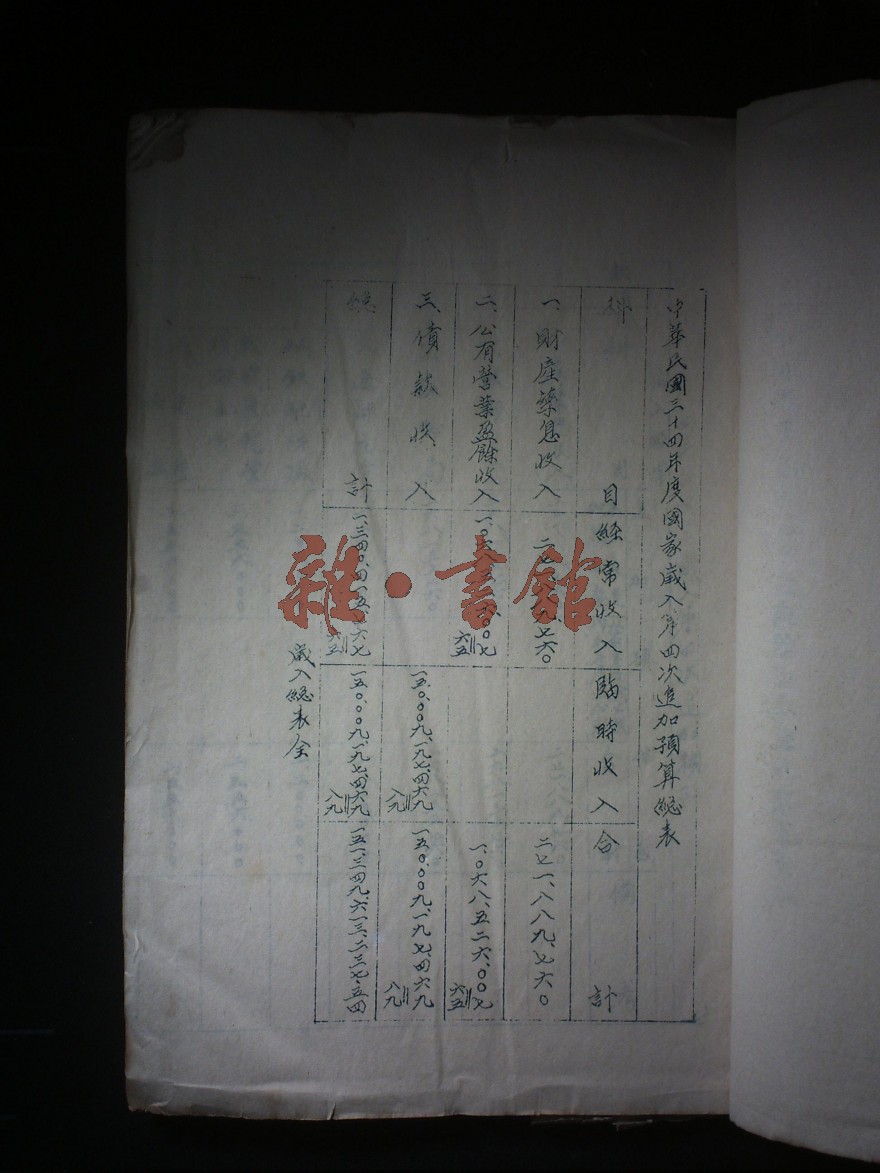 中華民國三十四年度國家歲入第四次追加預算總表
科目 經常收入 臨時收入 合計
一、財產孳息收入 二七 七六〇 二七一、八八九、七六〇
二、公有營業盈餘收入 一、〇六八、 六、〇〇七 六五 一、〇六八、五二六、〇〇七 六五
三、債款收入 一五〇、〇〇九、一九七、四六九 八九 一五〇、〇〇九、一九七、四六九 八九
總計 一、三四〇、四一五、七六七 六五 一五〇、〇〇九、一九七、四六九 八九 一五一、三四九、六一三、二三七.五四
歲入總表全
雜·書館